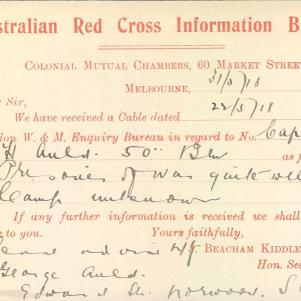 stralian Red Cross Information B
COLONIAL MUTUAL CHAMBERS, 60 MARKET STREET
MELBOURNE, 31/5/18
r Sir,
We have received a Cable dated 22/5/18
Hon W. & M. Enquiry Bureau in regard to No. Cap
H Auld. 50th Bn as f
Prisoner of war quite well
Camp unknown
If any further information is received we shall
to you. Yours faithfully,
advise BEACHAM KIDDLE
Hon. Sec
George Auld.
Edward St. Norwood. S